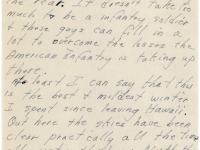 the rear. It doesn't take too
much to be a infantry soldier
& these guys can fill in a
lot to overcome the losses the
American Infantry is taking up
there.
At least I can say that this
is the best & mildest winter
I spent since leaving Hawaii.
Out here the skies have been
clear practically all the time